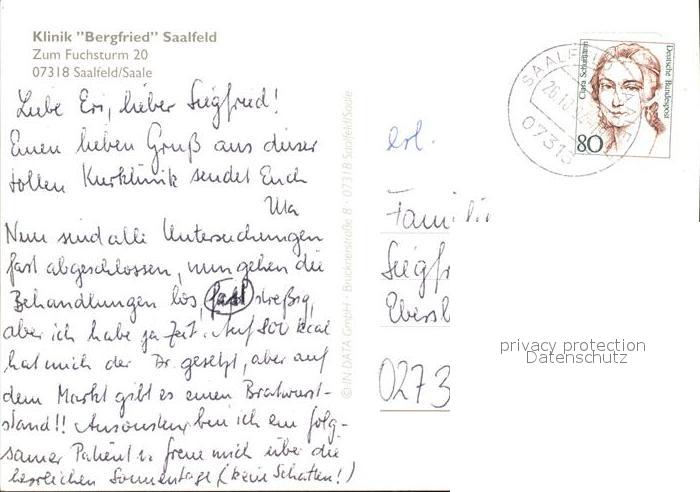 Klinik "Bergfried" Saalfeld
Zum Fuchsturm 20
07318 Saalfeld/Saale
Liebe Evi, lieber Siegfried!
Einen lieben Gruß aus dieser
tollen Kurklinik sendet Euch
Uta
Nun sind alle Untersuchungen
fast abgeschlossen, nun gehen die
Behandlungen los, fast stressig,
aber ich habe ja Zeit. Auf 800 kcal
hat mich der Dr. gesetzt, aber auf
dem Markt gibt es einen Bratwurst-
stand!! Ansonsten bin ich ein folg-
samer Patient u. freue mich über die
herrlichen Sonnentage (keine Schatten!)
© IN DATA GmbH · Brucknerstraße 8 · 07318 Saalfeld/Saale
erl.
SAALFELD
07318
Clara Schumann
Deutsche Bundespost
80
Familie
Siegfr
0273
privacy protection
Datenschutz